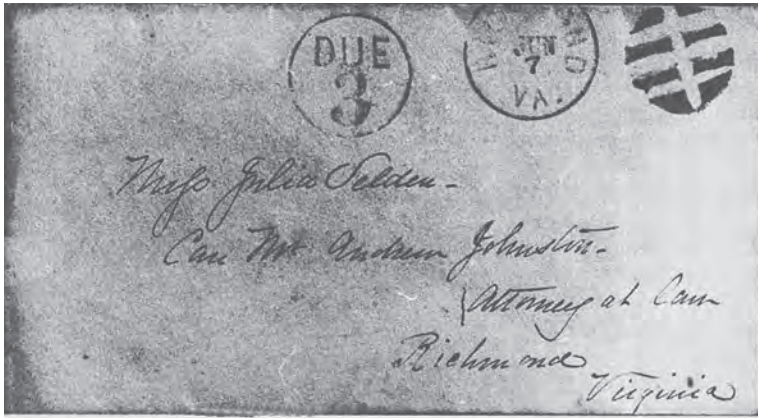 DUE
3
RICHMOND
JUN
7
VA.
Miss Julia Selden -
Care Mr. Andrew Johnston -
Attorney at Law
Richmond
Virginia